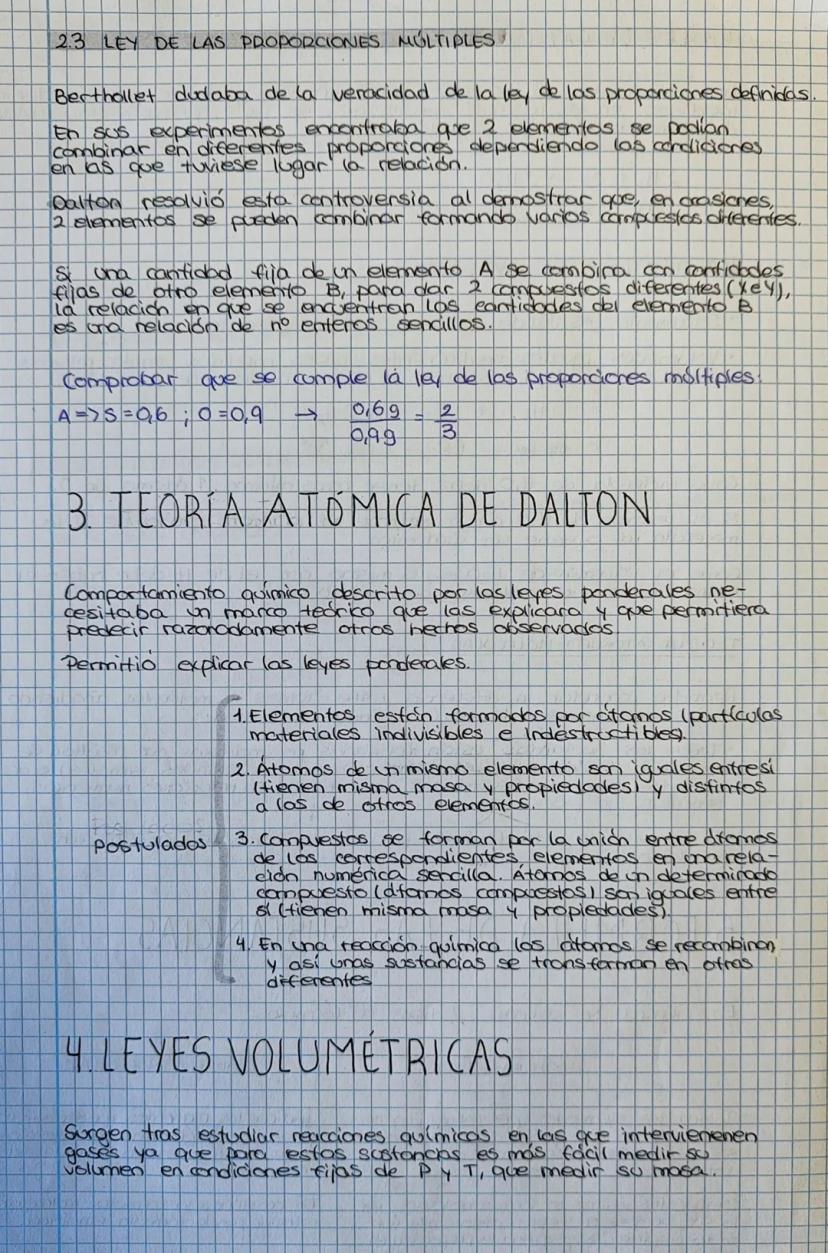 2.3 LEY DE LAS PROPORCIONES MÚLTIPLES
Berthollet dudaba de la veracidad de la ley de las proporciones definidas.
En sus experimentos encontraba que 2 elementos se podían
combinar en diferentes proporciones dependiendo las condiciones
en las que tuviese lugar la relación.
Dalton resolvió esta controversia al demostrar que, en ocasiones,
2 elementos se pueden combinar formando varios compuestos diferentes.
Si una cantidad fija de un elemento A se combina con cantidades
fijas de otro elemento B, para dar 2 compuestos diferentes (X e Y),
la relación en que se encuentran las cantidades del elemento B
es una relación de nº enteros sencillos.
Comprobar que se cumple la ley de las proporciones múltiples:
A => S = 0,6 ; O = 0,9 → 0,6g / 0,9g = 2/3
3. TEORÍA ATÓMICA DE DALTON
Comportamiento químico descrito por las leyes ponderales ne-
cesitaba un marco teórico que las explicara y que permitiera
predecir razonadamente otros hechos observados
Permitió explicar las leyes ponderales.
1. Elementos están formados por átomos (partículas
materiales indivisibles e indestructibles).
2. Átomos de un mismo elemento son iguales entre sí
(tienen misma masa y propiedades) y distintos
a los de otros elementos.
Postulados
3. Compuestos se forman por la unión entre átomos
de los correspondientes elementos en una rela-
ción numérica sencilla. Átomos de un determinado
compuesto (átomos compuestos) son iguales entre
sí (tienen misma masa y propiedades).
4. En una reacción química los átomos se recombinan
y así unas sustancias se transforman en otras
diferentes
4. LEYES VOLUMÉTRICAS
Surgen tras estudiar reacciones químicas en las que intervienenen
gases ya que para estas sustancias es más fácil medir su
volumen en condiciones fijas de P y T, que medir su masa.